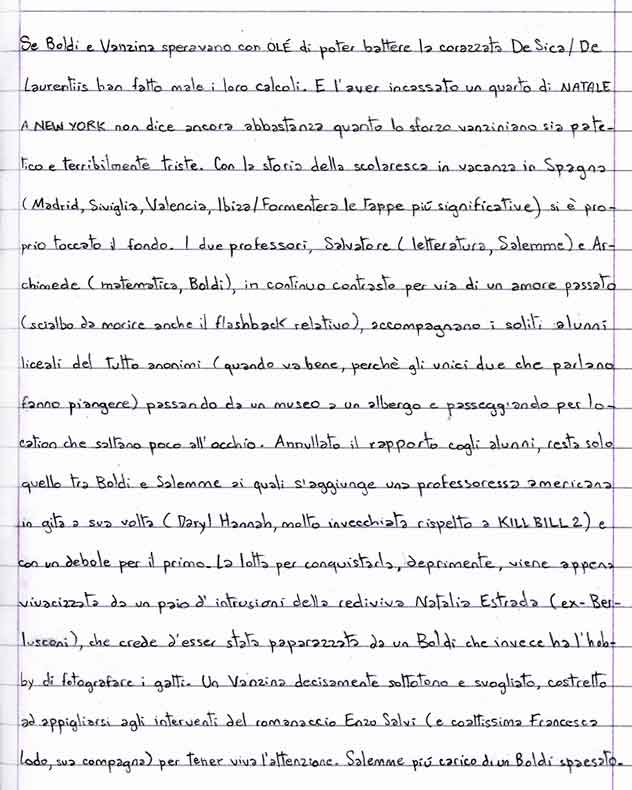 Se Boldi e Vanzina speravano con OLÉ di poter battere la corazzata De Sica/De
Laurentiis han fatto male i loro calcoli. E l'aver incassato un quarto di NATALE
A NEW YORK non dice ancora abbastanza quanto lo sforzo vanziniano sia pate-
tico e terribilmente triste. Con la storia della scolaresca in vacanza in Spagna
(Madrid, Siviglia, Valencia, Ibiza/Formentera le tappe piú significative) si è pro-
prio toccato il fondo. I due professori, Salvatore (letteratura, Salemme) e Ar-
chimede (matematica, Boldi), in continuo contrasto per via di un amore passato
(scialbo da morire anche il flashback relativo), accompagnano i soliti alunni
liceali del tutto anonimi (quando va bene, perchè gli unici due che parlano
fanno piangere) passando da un museo a un albergo e passeggiando per lo-
cation che saltano poco all'occhio. Annullato il rapporto cogli alunni, resta solo
quello tra Boldi e Salemme ai quali s'aggiunge una professoressa americana
in gita a sua volta (Daryl Hannah, molto invecchiata rispetto a KILL BILL 2) e
con un debole per il primo. La lotta per conquistarla, deprimente, viene appena
vivacizzata da un paio d'intrusioni della rediviva Natalia Estrada (ex-Ber-
lusconi), che crede d'esser stata paparazzata da un Boldi che invece ha l'hob-
by di fotografare i gatti. Un Vanzina decisamente sottotono e svogliato, costretto
ad appigliarsi agli interventi del romanaccio Enzo Salvi (e coattissima Francesca
Lodo, sua compagna) per tener viva l'attenzione. Salemme piú carico di un Boldi spaesato.